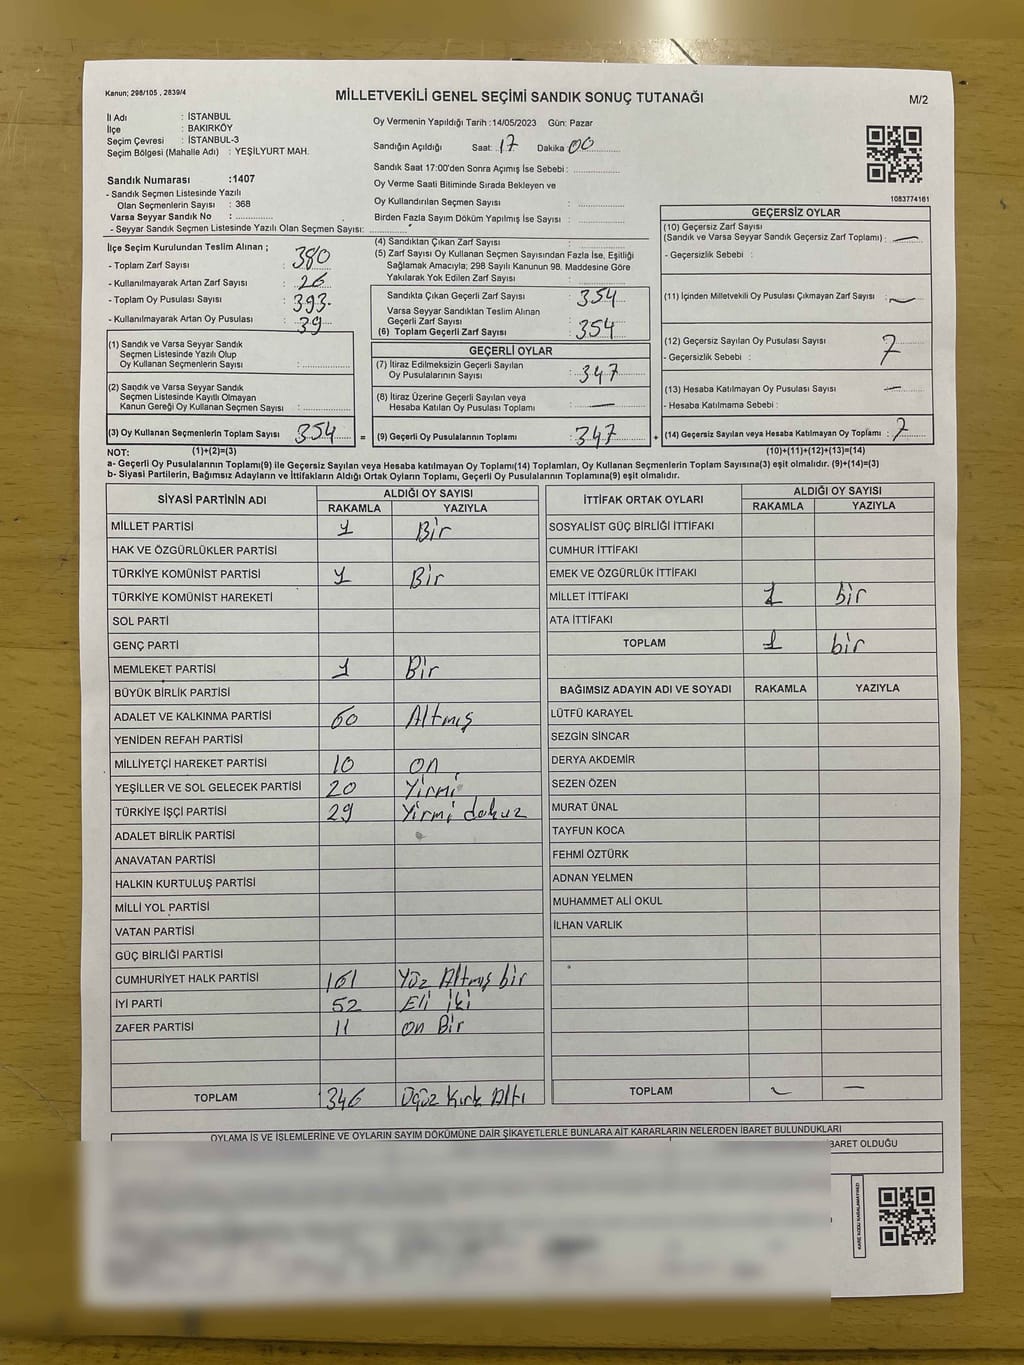 Kanun; 298/105 , 2839/4
MİLLETVEKİLİ GENEL SEÇİMİ SANDIK SONUÇ TUTANAĞI
M/2
İl Adı : İSTANBUL
İlçe : BAKIRKÖY
Seçim Çevresi : İSTANBUL-3
Seçim Bölgesi (Mahalle Adı) : YEŞİLYURT MAH.
Oy Vermenin Yapıldığı Tarih :14/05/2023 Gün: Pazar
Sandığın Açıldığı Saat: 17 Dakika 00
Sandık Saat 17:00'den Sonra Açımış İse Sebebi :
Oy Verme Saati Bitiminde Sırada Bekleyen ve
Oy Kullandırılan Seçmen Sayısı :
Birden Fazla Sayım Döküm Yapılmış İse Sayısı :
1083774161
Sandık Numarası :1407
- Sandık Seçmen Listesinde Yazılı
Olan Seçmenlerin Sayısı : 368
Varsa Seyyar Sandık No :
- Seyyar Sandık Seçmen Listesinde Yazılı Olan Seçmen Sayısı:
İlçe Seçim Kurulundan Teslim Alınan ;
- Toplam Zarf Sayısı : 380
- Kullanılmayarak Artan Zarf Sayısı : 26
- Toplam Oy Pusulası Sayısı : 393
- Kullanılmayarak Artan Oy Pusulası : 39
(1) Sandık ve Varsa Seyyar Sandık
Seçmen Listesinde Yazılı Olup
Oy Kullanan Seçmenlerin Sayısı :
(2) Sandık ve Varsa Seyyar Sandık
Seçmen Listesinde Kayıtlı Olmayan
Kanun Gereği Oy Kullanan Seçmen Sayısı :
(3) Oy Kullanan Seçmenlerin Toplam Sayısı 354 =
(4) Sandıktan Çıkan Zarf Sayısı :
(5) Zarf Sayısı Oy Kullanan Seçmen Sayısından Fazla İse, Eşitliği
Sağlamak Amacıyla; 298 Sayılı Kanunun 98. Maddesine Göre
Yakılarak Yok Edilen Zarf Sayısı :
Sandıkta Çıkan Geçerli Zarf Sayısı : 354
Varsa Seyyar Sandıktan Teslim Alınan
Geçerli Zarf Sayısı :
(6) Toplam Geçerli Zarf Sayısı : 354
GEÇERLİ OYLAR
(7) İtiraz Edilmeksizin Geçerli Sayılan
Oy Pusulalarının Sayısı : 347
(8) İtiraz Üzerine Geçerli Sayılan veya
Hesaba Katılan Oy Pusulası Toplamı : —
(9) Geçerli Oy Pusulalarının Toplamı : 347 +
GEÇERSİZ OYLAR
(10) Geçersiz Zarf Sayısı
(Sandık ve Varsa Seyyar Sandık Geçersiz Zarf Toplamı) : —
- Geçersizlik Sebebi :
(11) İçinden Milletvekili Oy Pusulası Çıkmayan Zarf Sayısı : —
(12) Geçersiz Sayılan Oy Pusulası Sayısı : 7
- Geçersizlik Sebebi :
(13) Hesaba Katılmayan Oy Pusulası Sayısı —
- Hesaba Katılmama Sebebi :
(14) Geçersiz Sayılan veya Hesaba Katılmayan Oy Toplamı : 7
NOT: (1)+(2)=(3) (10)+(11)+(12)+(13)=(14)
a- Geçerli Oy Pusulalarının Toplamı(9) ile Geçersiz Sayılan veya Hesaba katılmayan Oy Toplamı(14) Toplamları, Oy Kullanan Seçmenlerin Toplam Sayısına(3) eşit olmalıdır. (9)+(14)=(3)
b- Siyasi Partilerin, Bağımsız Adayların ve İttifakların Aldığı Ortak Oyların Toplamı, Geçerli Oy Pusulalarının Toplamına(9) eşit olmalıdır.
SİYASİ PARTİNİN ADI ALDIĞI OY SAYISI
RAKAMLA YAZIYLA
MİLLET PARTİSİ 1 Bir
HAK VE ÖZGÜRLÜKLER PARTİSİ
TÜRKİYE KOMÜNİST PARTİSİ 1 Bir
TÜRKİYE KOMÜNİST HAREKETİ
SOL PARTİ
GENÇ PARTİ
MEMLEKET PARTİSİ 1 Bir
BÜYÜK BİRLİK PARTİSİ
ADALET VE KALKINMA PARTİSİ 60 Altmış
YENİDEN REFAH PARTİSİ
MİLLİYETÇİ HAREKET PARTİSİ 10 on
YEŞİLLER VE SOL GELECEK PARTİSİ 20 Yirmi
TÜRKİYE İŞÇİ PARTİSİ 29 Yirmi dokuz
ADALET BİRLİK PARTİSİ
ANAVATAN PARTİSİ
HALKIN KURTULUŞ PARTİSİ
MİLLİ YOL PARTİSİ
VATAN PARTİSİ
GÜÇ BİRLİĞİ PARTİSİ
CUMHURİYET HALK PARTİSİ 161 Yüz Altmış bir
İYİ PARTİ 52 Eli iki
ZAFER PARTİSİ 11 on Bir
TOPLAM 346 Üçüz Kırk Altı
İTTİFAK ORTAK OYLARI ALDIĞI OY SAYISI
RAKAMLA YAZIYLA
SOSYALİST GÜÇ BİRLİĞİ İTTİFAKI
CUMHUR İTTİFAKI
EMEK VE ÖZGÜRLÜK İTTİFAKI
MİLLET İTTİFAKI 1 bir
ATA İTTİFAKI
TOPLAM 1 bir
BAĞIMSIZ ADAYIN ADI VE SOYADI RAKAMLA YAZIYLA
LÜTFÜ KARAYEL
SEZGİN SİNCAR
DERYA AKDEMİR
SEZEN ÖZEN
MURAT ÜNAL
TAYFUN KOCA
FEHMİ ÖZTÜRK
ADNAN YELMEN
MUHAMMET ALİ OKUL
İLHAN VARLIK
TOPLAM — —
OYLAMA İŞ VE İŞLEMLERİNE VE OYLARIN SAYIM DÖKÜMÜNE DAİR ŞİKAYETLERLE BUNLARA AİT KARARLARIN NELERDEN İBARET BULUNDUKLARI
BARET OLDUĞU
KARE KODU KARALAMAYINIZ!